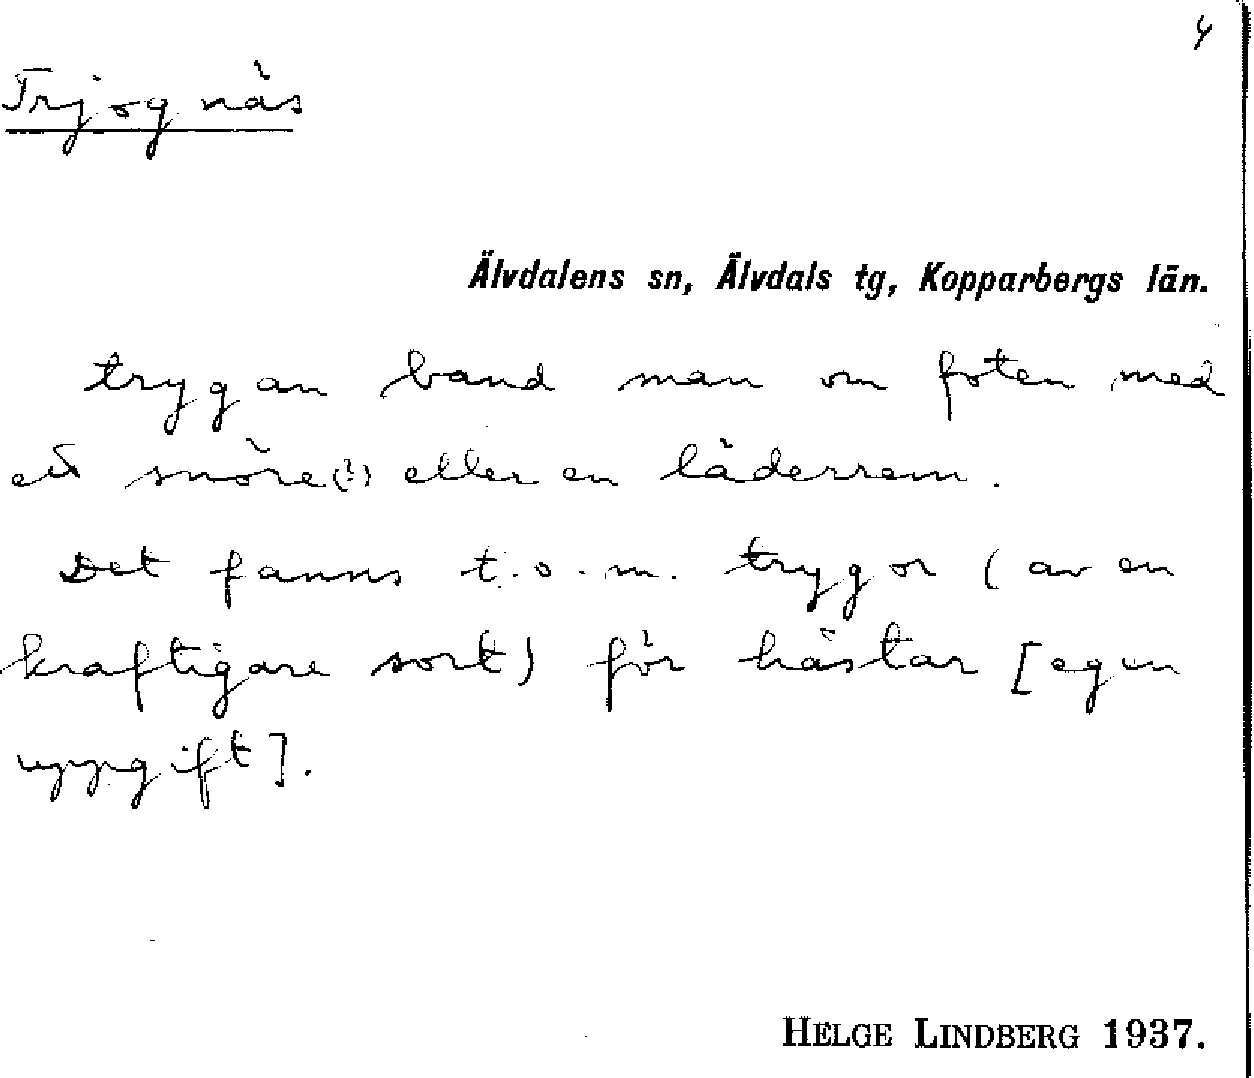 4
Trjognäs
Älvdalens sn, Älvdals tg, Kopparbergs län.
trygan band man om foten med
ett snöre(?) eller en läderrem.
Det fanns t.o.m. trygor (av en
kraftigare sort) för hästar [egen
uppgift].
HELGE LINDBERG 1937.